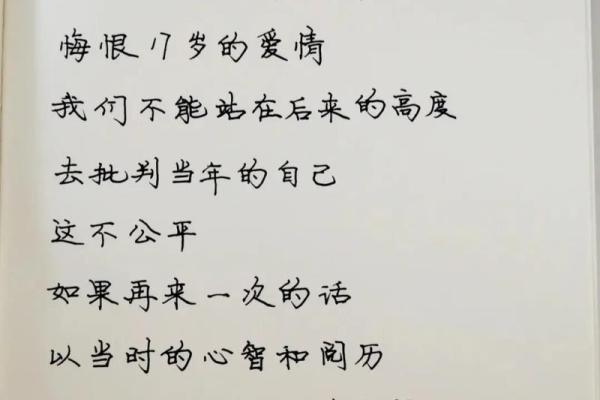 悔恨17岁的爱情
我们不能站在后来的高度
去批判当年的自己
这不公平
如果再来一次的话
以当时的心智和阅历